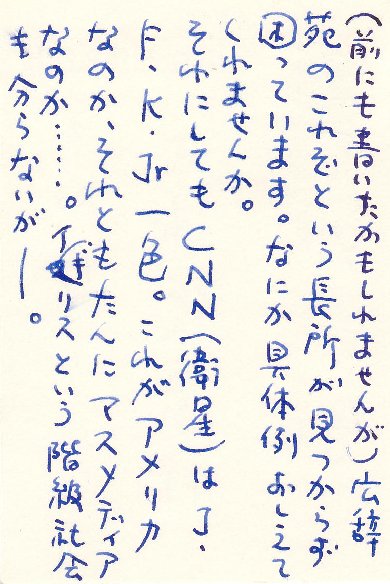 （前にも書いたかもしれませんが）広辞
苑のこれぞという長所が見つからず
困っています。なにか具体例おしえて
くれませんか。
それにしてもCNN（衛星）はJ・
F・K・Jr一色。これがアメリカ
なのか、それともたんにマスメディア
なのか……。イギリスという階級社会
も分らないが―。